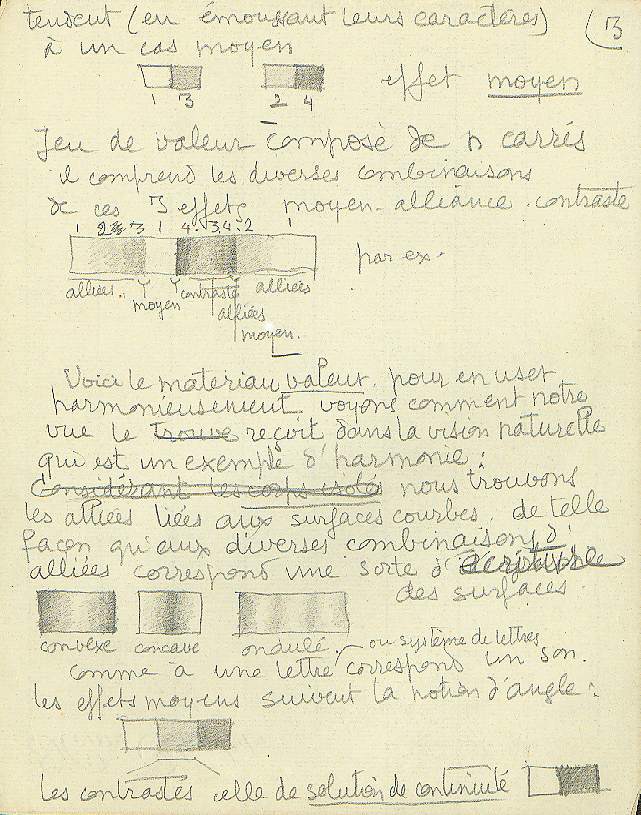 tendent (en émoussant leurs caractères) 13
à un cas moyen
1 3 2 4 effet moyen
Jeu de valeur composé de n carrés
il comprend les diverses combinaisons
de ces 3 effets moyen. alliance. contraste
1 2 3 1 4. 3. 4. 2 1
par ex.
alliées. moyen contraste alliées
alliées
moyen.
Voici le matériau valeur. pour en user
harmonieusement voyons comment notre
vue le trouve reçoit dans la vision naturelle
qui est un exemple d'harmonie :
Considérant les corps isolés nous trouvons
les alliées liées aux surfaces courbes, de telle
façon qu'aux diverses combinaisons d'
alliées correspond une sorte d'écriture
des surfaces
convexe concave ondulé. ou système de lettres
comme à une lettre correspond un son.
les effets moyens suivent la notion d'angle :
les contrastes celle de solution de continuité